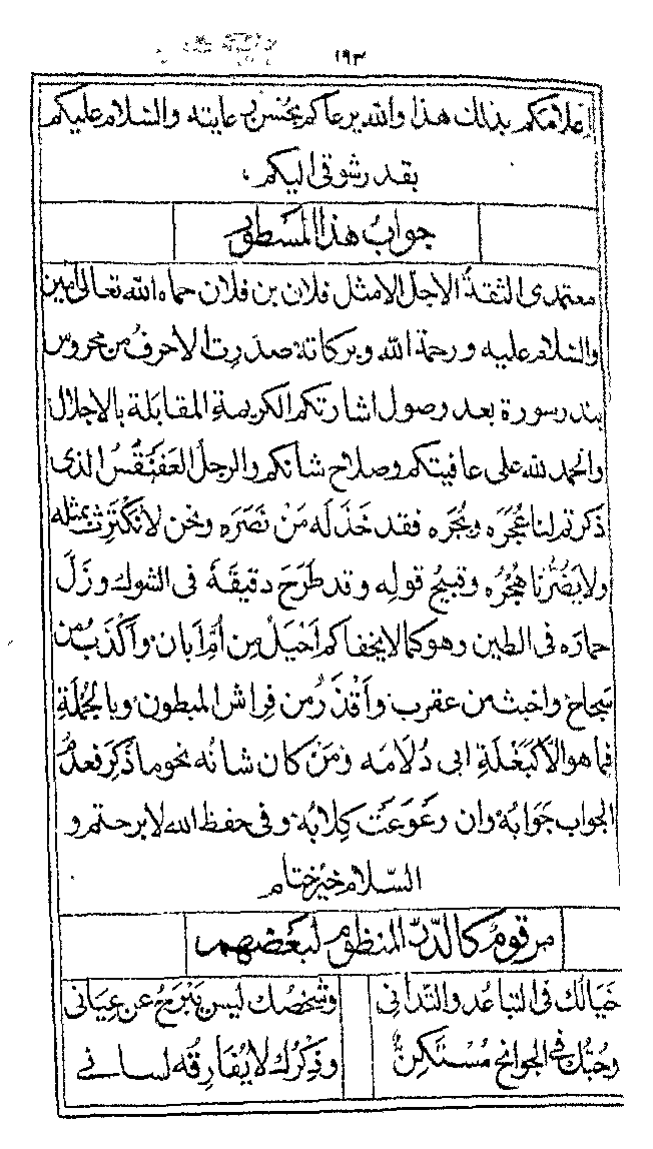 ١٩٣
اعلامكم بذلك هذا والله يرعاكم بحسن رعايته والسلام عليكم
بقدر شوقى اليكم ،
جوابُ هذا المسطور
معتمدى الثقة الاجل الامثل فلان بن فلان حماه الله تعالى امين
والسلام عليه ورحمة الله وبركاته صدرت الاحرف من محروس
بندر سورة بعد وصول اشارتكم الكريمةِ المقابلة بالاجلال
والحمد لله على عافيتكم وصلاح شأنكم والرجل العَفَنْقَسُ الذى
ذكرتم لنا عُجَرَه وبُجَرَه فقد خَذَلَه مَنْ نَصَرَه ونحن لانَكْتَرِثُ بمثله
ولايَضُرُّنا هُجْرُه وقبيحُ قولِه وقد طَرَحَ دقيقَهُ فى الشوك وزَلَّ
حماره فى الطين وهو كما لايخفاكم اَحْيَلُ مِن اُمِّ ابان واَكْذَبُ من
سجاح واخبث من عقرب واَقْذَرُ من فِراش المبطون وبالجُمْلَةِ
فما هو الا كَبَغْلَةِ ابى دُلَامَه ومَنْ كان شانُه نحو ما ذُكِرَ فعدمُ
الجواب جَوَابُهُ وان وَعْوَعَتْ كِلابُه وفى حفظ الله لابرحتم و
السّلام خيرُ ختام
مرقومٌ كالدُّرِّ المنظوم لبَعْضهم
خَيَالك فى التباعُد والتَّدانِى وشخصُك ليس يَبْرَحُ عن عِيَانى
وحُبُّك فى الجوانح مُسْتَكِنٌّ وذِكْرُك لايُفَارِقُه لسانى